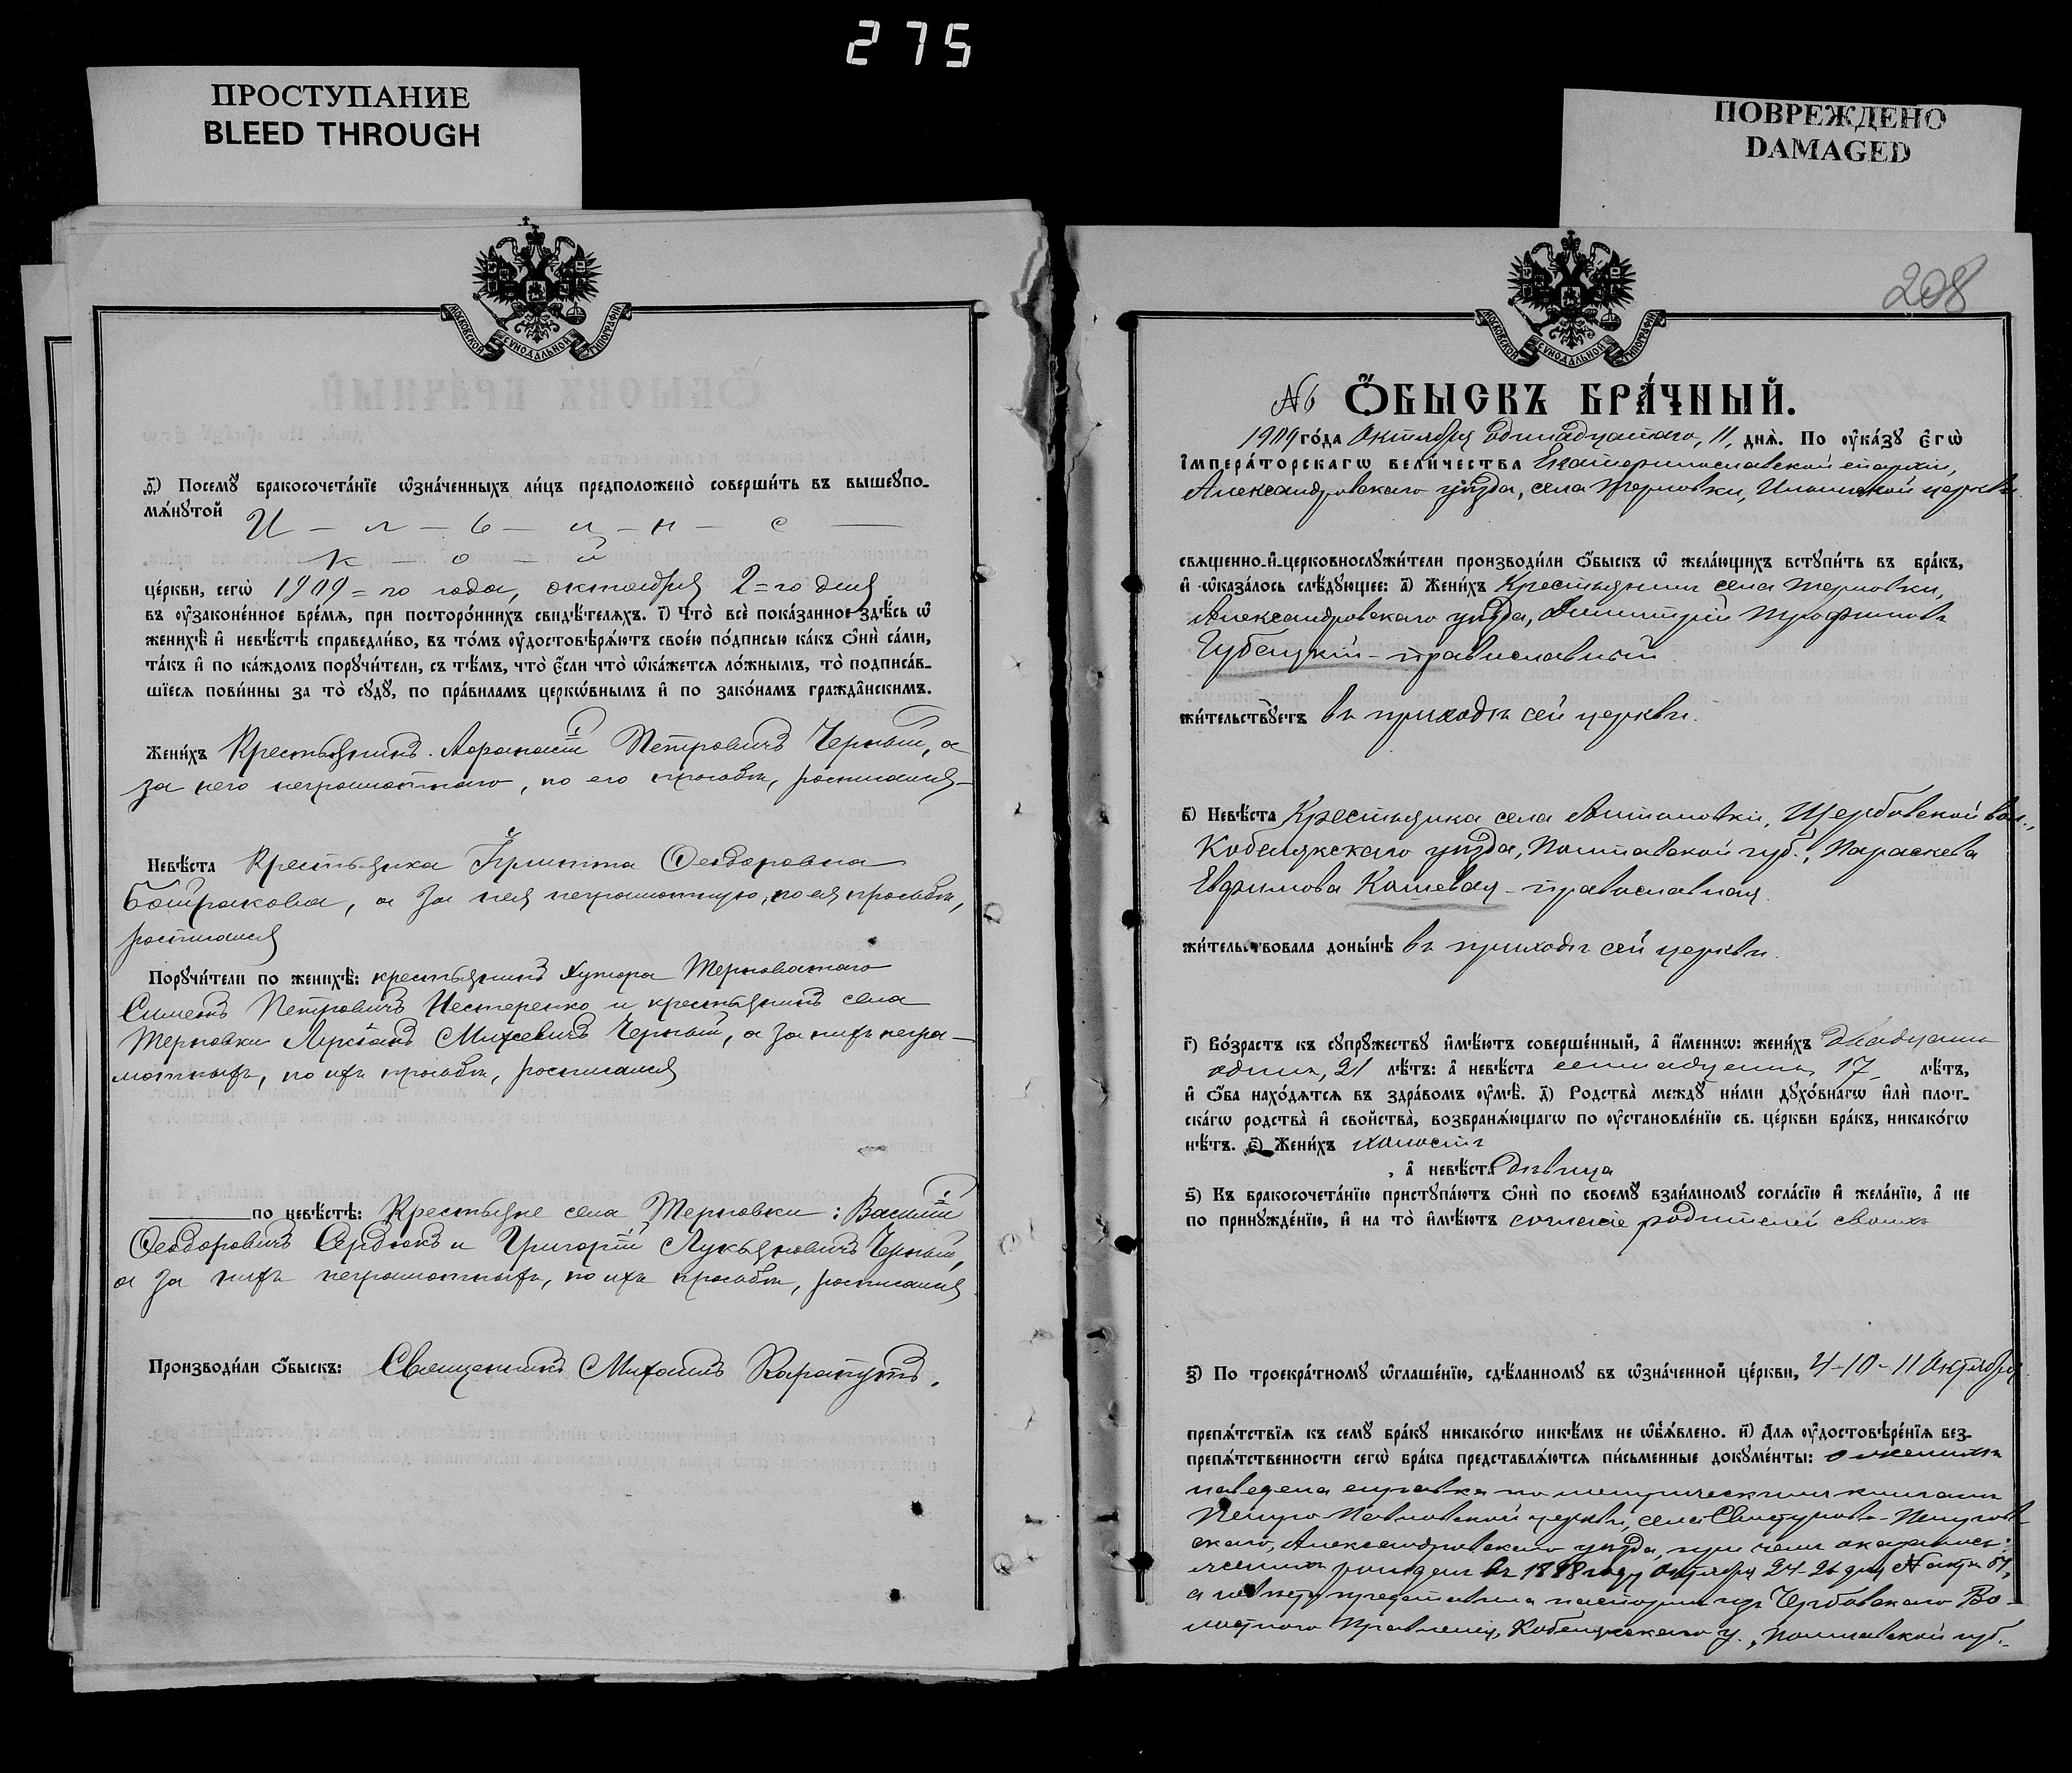 275
ПРОСТУПАНИЕ
BLEED THROUGH
МОСКОВСКОЙ СѴНОДАЛЬНОЙ ТИПОГРАФІИ
ѳ҃) Посемꙋ̀ бракосочета́нїе ѡ҆зна́ченныхъ ли́цъ предположено̀ соверши́ть въ вышеупо-
мѧ́нꙋтой И - л - ь - и - н - с -
к - о - й
це́ркви, сегѡ̀ 1909 = го года, октября 2 = го дня
въ ᲂу҆законе́нное вре́мѧ, при посторо́ннихъ свидѣ́телѧхъ. і҃) Что̀ всѐ пока́занное здѣ́сь ѡ҆
женихѣ̀ и҆ невѣ́стѣ справедли́во, въ то́мъ ᲂу҆достовѣрѧ́ютъ свое́ю по́дписью ка́къ ѻ҆нѝ са́ми,
та́къ и҆ по ка́ждомъ порꙋчи́тели, съ тѣ́мъ, что̀ є҆́сли что̀ ѡ҆ка́жетсѧ ло́жнымъ, то̀ подписа́в-
шїесѧ пови́нны за то̀ сꙋдꙋ̀, по пра́виламъ церкѡ́внымъ и҆ по зако́намъ гражда̑нскимъ.
Жени́хъ Крестьянинъ Аѳанасій Петровичъ Черный, а
за него неграмотнаго, по его просьбѣ, росписался
Невѣ́ста Крестьянка Ѳеодоровна
а за нея неграмотную, по ея просьбѣ,
росписался
Порꙋчи́тели по женихѣ̀: крестьянинъ хутора Терноватаго
Симеонъ Петровичъ Нестеренко и крестьянинъ села
Терновки Михеевичъ Черный, а за нихъ негра-
мотныхъ, по ихъ просьбѣ, росписался
по невѣ́стѣ: Крестьяне села Терновки: Василій
Ѳеодоровичъ Сердюкъ и Григорій Лукьяновичъ Черный,
а за нихъ неграмотныхъ, по ихъ просьбѣ, росписался
Производи́ли ѻ҆́быскъ: Священникъ Михаилъ
ПОВРЕЖДЕНО
DAMAGED
208
МОСКОВСКОЙ СѴНОДАЛЬНОЙ ТИПОГРАФІИ
№ 6 Ѻ҆́БЫСКЪ БРА́ЧНЫЙ.
1909 го́да Октября одинадцатаго, 11, днѧ̀. По ᲂу҆ка́зꙋ є҆гѡ̀
і҆мпера́торскагѡ вели́чества Екатеринославской епархіи,
Александровскаго уѣзда, села Терновки, Ильинской церкви
свѧще́нно-и҆-церковнослꙋжи́тели производи́ли ѻ҆́быскъ ѡ҆ жела́ющихъ встꙋпи́ть въ бра́къ,
и҆ ѡ҆каза́лось слѣ́дꙋющее: а҃) Жени́хъ Крестьянинъ села Терновки,
Александровскаго уѣзда, Димитрій Трофимовъ
Губецкій - православный
жи́тельствꙋетъ въ приходѣ сей церкви.
в҃) Невѣ́ста Крестьянка села Антоновки, Щербовской вол.,
Кобелякскаго уѣзда, Полтавской губ., Параскева
Евфимова Кошевая - православная
жи́тельствовала доны́нѣ въ приходѣ сей церкви.
г҃) Во́зрастъ къ сꙋпрꙋ́жествꙋ и҆мѣ́ютъ соверше́нный, а҆ и҆́меннѡ: жени́хъ двадцать
одинъ, 21 лѣ́тъ: а҆ невѣ́ста семнадцать, 17 лѣ́тъ,
и҆ ѻ҆́ба нахо́дѧтсѧ въ здра́вомъ ᲂу҆мѣ̀. д҃) Родства̀ междꙋ̀ ни́ми дꙋхо́внагѡ и҆лѝ плот-
ска́гѡ родства̀ и҆ сво́йства, возбранѧ́ющагѡ по ᲂу҆становле́нїю св. це́ркви бра́къ, никако́гѡ
нѣ́тъ. є҃) Жени́хъ холостъ
, а҆ невѣ́ста дѣвица
ѕ҃) Къ бракосочета́нїю пристꙋпа́ютъ ѻ҆нѝ по своемꙋ̀ взаи́мномꙋ согла́сїю и҆ жела́нїю, а҆ не
по принꙋжде́нїю, и҆ на то̀ и҆мѣ́ютъ согласіе родителей своихъ
з҃) По троекра́тномꙋ ѡ҆глаше́нїю, сдѣ́ланномꙋ въ ѡ҆зна́ченной це́ркви, 4-10-11 Октября
препѧ́тствїѧ къ семꙋ̀ бра́кꙋ никако́гѡ никѣ́мъ не ѡ҆б̾ѧ́влено. и҃) Длѧ ᲂу҆достовѣре́нїѧ без-
препѧ́тственности сегѡ̀ бра́ка представлѧ́ютсѧ пи́сьменные докꙋме́нты: о женихѣ
наведена справка по метрическимъ книгамъ
Петро-Павловской церкви, села Свистунова-Петров-
скаго, Александровскаго уѣзда, при чемъ оказалось:
женихъ рожденъ въ 1888 году Октября 24-26 дня № акта 57,
а невѣста представила паспортъ изъ Щербовскаго Во-
лостного Правленія, Кобелякскаго у., Полтавской губ.